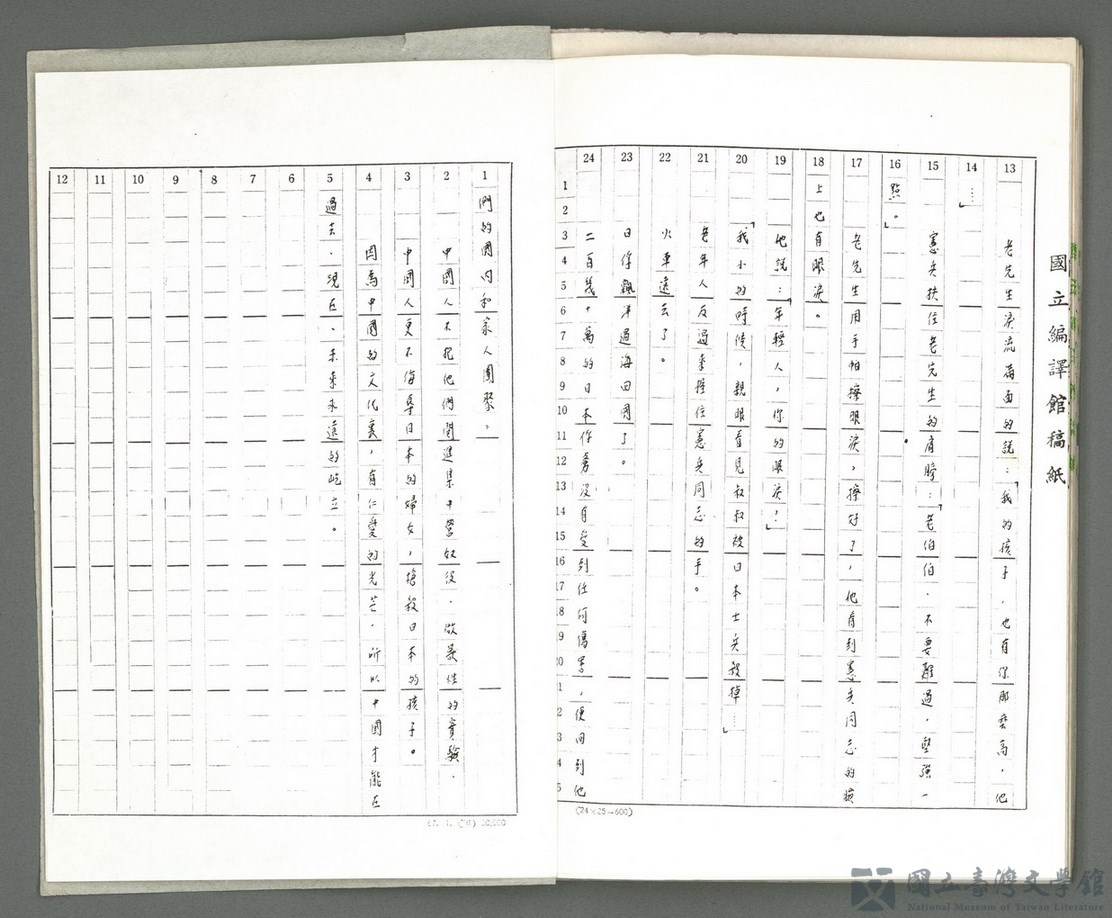 國立編譯館稿紙
13
老先生淚流滿面的說:「我的孩子,也有你那麼高,他
14
……」
15
憲兵扶住老先生的肩膀:「老伯伯,不要難過,堅強一
16
點。」
17
老先生用手帕擦眼淚,擦好了,他看到憲兵同志的臉
18
上也有眼淚。
19
他說:「年輕人,你的眼淚!」
20
「我小的時候,親眼看見叔叔被日本士兵殺掉……」
21
老年人反過來握住憲兵同志的手。
22
火車遠去了。
23
日俘飄洋過海回國了。
24
二百幾十萬的日本俘虜沒有受到任何傷害,便回到他
1 2 3 4 5 6 7 8 9 10 11 12 13 14 15 16 17 18 19 20 21 22 23 24 25
(24×25=600)
1
們的國內和家人團聚。
2
中國人不把他們關進集中營奴役,做殘性的實驗,
3
中國人更不侮辱日本的婦女,搶殺日本的孩子。
4
因為中國的文化裏,有仁愛的光芒,所以中國才能在
5
過去、現在、未來永遠的屹立。
6
7
8
9
10
11
12
國立臺灣文學館
National Museum of Taiwan Literature